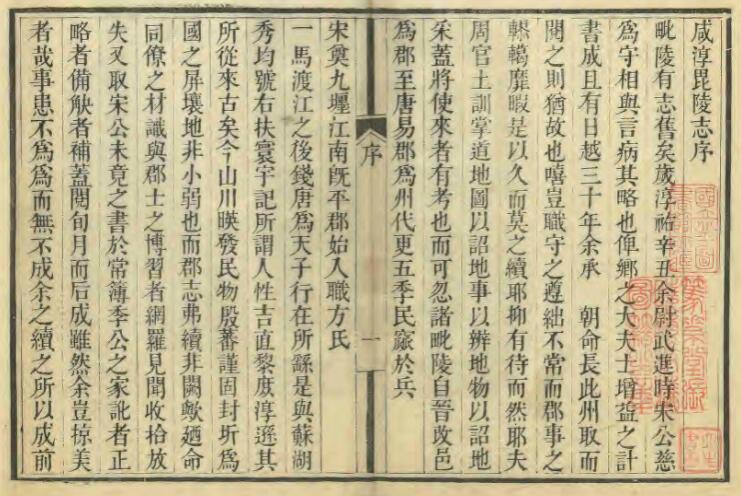 咸淳毘陵志序
毗陵有志舊矣歲淳祐辛丑余尉武進時宋公慈
爲守相與言病其略也俾鄉之大夫士增益之計
書成且有日越三十年余承 朝命長此州取而
閱之則猶故也嘻豈職守之遵絀不常而郡事之
轇轕靡暇是以久而莫之續耶抑有待而然耶夫
周官土訓掌道地圖以詔地事以辨地物以詔地
釆蓋將使來者有考也而可忽諸毗陵自晉改邑
爲郡至唐易郡爲州代更五季民竄於兵
序
一
宋奠九壥江南旣平郡始入職方氏
一馬渡江之後錢唐爲天子行在所繇是與蘇湖
秀均號右扶寰宇記所謂人性吉直黎庶淳遜其
所從來古矣今山川暎發民物殷蕃謹固封圻爲
國之屏壤地非小弱也而郡志弗續非闕歟廼命
同僚之材識與郡士之博習者網羅見聞收拾放
失又取宋公未竟之書於常簿季公之家訛者正
略者備觖者補蓋閱旬月而后成雖然余豈掠美
者哉事患不爲爲而無不成余之續之所以成前